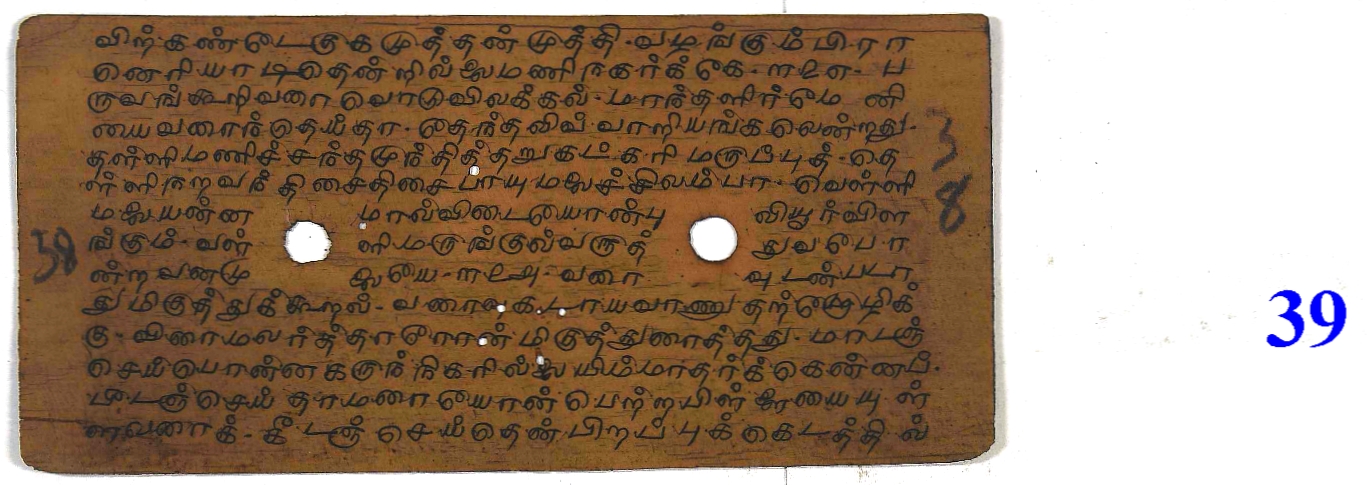 விற்கண்டெகுகமுத்தன்முத்தி.வழங்கும்பிரா
னெரியாடிதென்றில்லைமணிநகர்க்கே.௱௨௭.ப
ருவங்கூறிவரைவொடுவிலக்கல்.மாந்தளிர்மே னி
யைவரைந்தெய்தா.தேந்தலிவ் வாறியங்கலென்றது.
தள்ளிமணிச்சந்தமுந்தித்தறுகட்கரி மருப்புத்.தெ
ள்ளிநறவந்திசைதிசைபாயுமலைச்சிலம்பா.வெள்ளி
மலையன்ன மால்விடையொன்பு லியூர்விள
ங்கும்.வள் ளிமருங்குல்வருத் துவபொ
ன்றவனமு லையெ.௱௨௮.வரை வுடன்படா
துமிகுத்துக்கூறல். வரைவுகடாயவாணுதற்றொழிக்
கு.விரைமலர்த்தாரோன் மிகுத்துரைத்தது.மாடஞ்
செய்பொன்னகருந்நிகரில்லையிம்மாதர்க்கென்னப்.
பீடஞ்செய் தாமரையொன்பெற்றபிள்ளையையு ள்
ளலரைக்.கீடஞ் செய்தென்பிறப்புக்கெடத்தில்
38
38
39